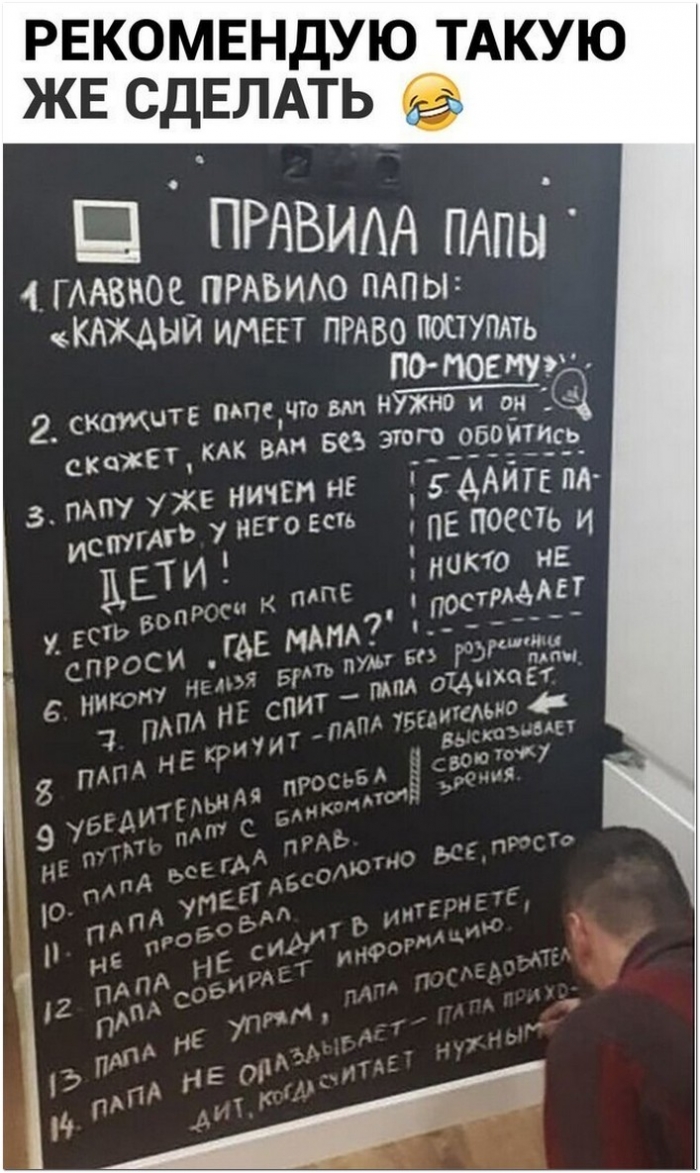 РЕКОМЕНДУЮ ТАКУЮ
ЖЕ СДЕЛАТЬ
ПРАВИЛА ПАПЫ
1. ГЛАВНОЕ ПРАВИЛО ПАПЫ:
«КАЖДЫЙ ИМЕЕТ ПРАВО ПОСТУПАТЬ
ПО-МОЕМУ»
2. СКАЖИТЕ ПАПЕ, ЧТО ВАМ НУЖНО И ОН
СКАЖЕТ, КАК ВАМ БЕЗ ЭТОГО ОБОЙТИСЬ
3. ПАПУ УЖЕ НИЧЕМ НЕ
ИСПУГАТЬ У НЕГО ЕСТЬ
ДЕТИ!
4. ЕСТЬ ВОПРОСЫ К ПАПЕ
СПРОСИ „ГДЕ МАМА?"
5 ДАЙТЕ ПА-
ПЕ ПОЕСТЬ И
НИКТО НЕ
ПОСТРАДАЕТ
6. НИКОМУ НЕЛЬЗЯ БРАТЬ ПУЛЬТ БЕЗ РОЗРЕШЕНИЯ
ПАПЫ.
7. ПАПА НЕ СПИТ – ПАПА ОТДЫХАЕТ.
8 ПАПА НЕ КРИЧИТ – ПАПА УБЕДИТЕЛЬНО
ВЫСКАЗЫВАЕТ
СВОЮ ТОЧКУ
ЗРЕНИЯ.
9 УБЕДИТЕЛЬНАЯ ПРОСЬБА
НЕ ПУТАТЬ ПАПУ С БАНКОМАТОМ
10. ПАПА ВСЕГДА ПРАВ.
11. ПАПА УМЕЕТ АБСОЛЮТНО ВСЕ, ПРОСТО
НЕ ПРОБОВАЛ.
12 ПАПА НЕ СИДИТ В ИНТЕРНЕТЕ,
ПАПА СОБИРАЕТ ИНФОРМАЦИЮ.
13. ПАПА НЕ УПРЯМ, ПАПА ПОСЛЕДОВАТЕЛ
14. ПАПА НЕ ОПАЗДЫВАЕТ – ПАПА ПРИХО-
ДИТ, КОГДА СЧИТАЕТ НУЖНЫМ